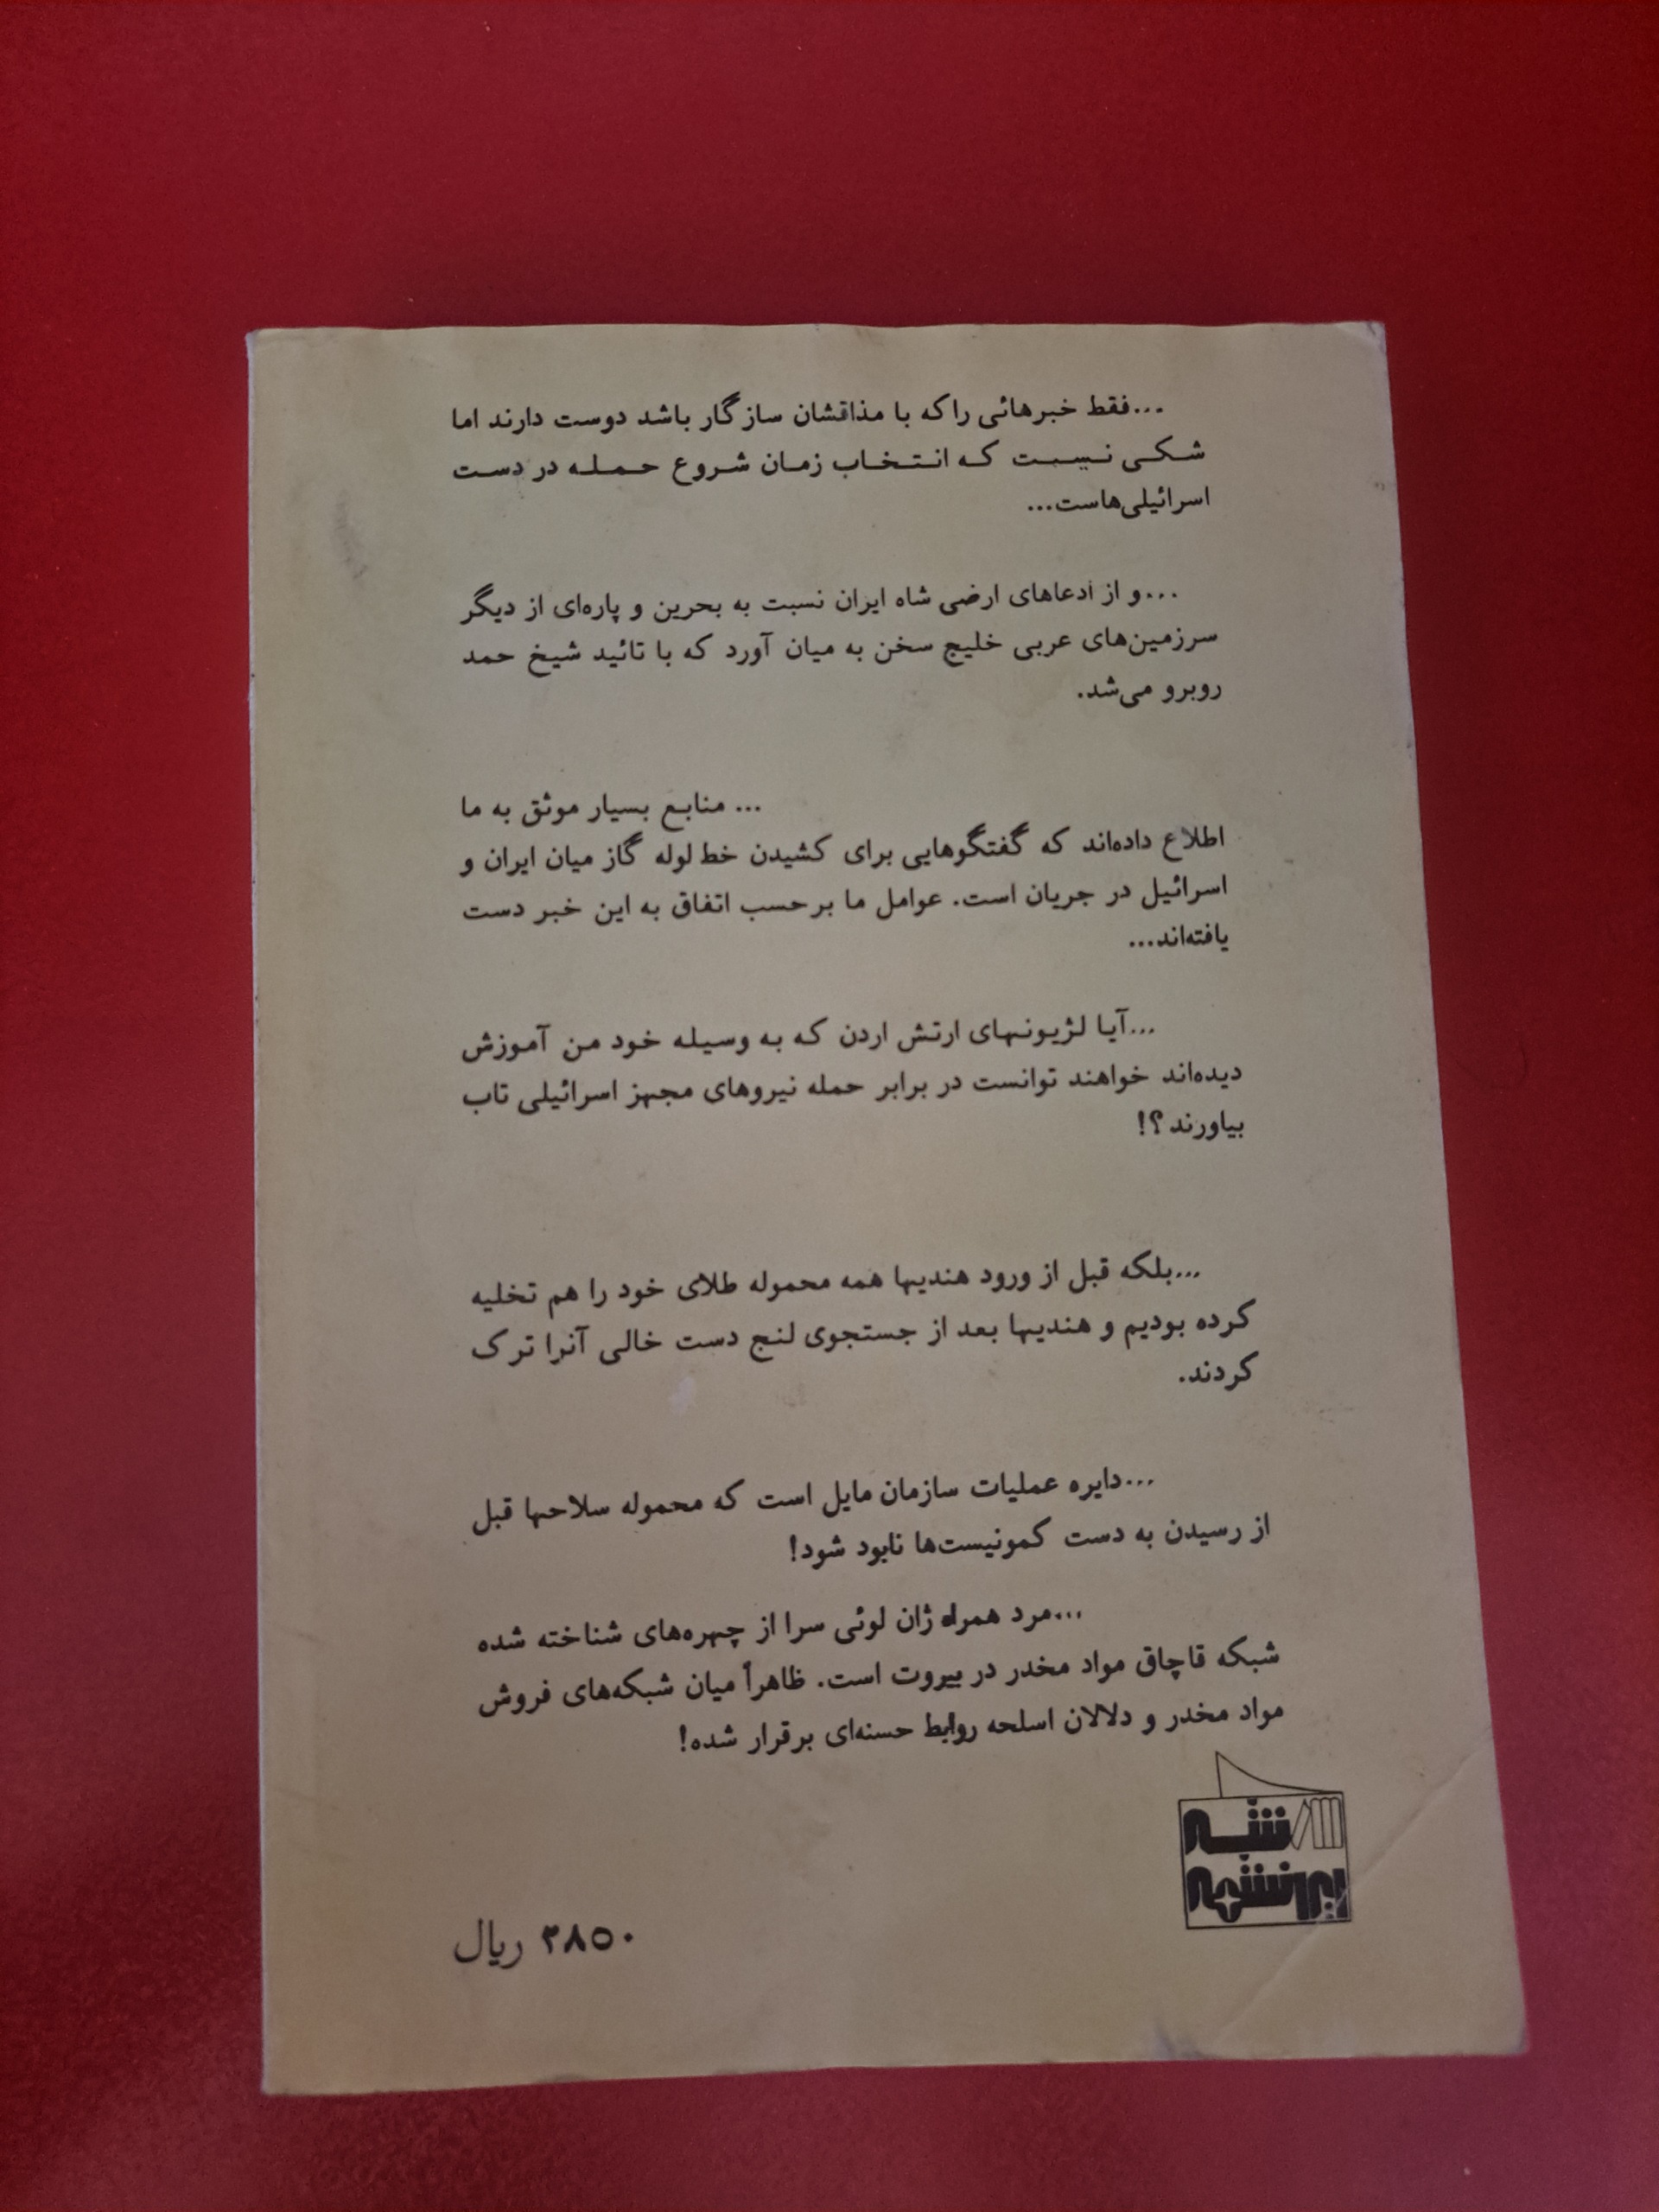 ...فقط خبرهائی را که با مذاقشان سازگار باشد دوست دارند اما
شکی نیست که انتخاب زمان شروع حمله در دست
اسرائیلی‌هاست...
...و از ادعاهای ارضی شاه ایران نسبت به بحرین و پاره‌ای از دیگر
سرزمین‌های عربی خلیج سخن به میان آورد که با تائید شیخ حمد
روبرو می‌شد.
... منابع بسیار موثق به ما
اطلاع داده‌اند که گفتگوهایی برای کشیدن خط لوله گاز میان ایران و
اسرائیل در جریان است. عوامل ما برحسب اتفاق به این خبر دست
یافته‌اند...
...آیا لژیونهای ارتش اردن که به وسیله خود من آموزش
دیده‌اند خواهند توانست در برابر حمله نیروهای مجهز اسرائیلی تاب
بیاورند؟!
...بلکه قبل از ورود هندیها همه محموله طلای خود را هم تخلیه
کرده بودیم و هندیها بعد از جستجوی لنج دست خالی آنرا ترک
کردند.
...دایره عملیات سازمان مایل است که محموله سلاحها قبل
از رسیدن به دست کمونیست‌ها نابود شود!
...مرد همراه ژان لوئی سرا از چهره‌های شناخته شده
شبکه قاچاق مواد مخدر در بیروت است. ظاهراً میان شبکه‌های فروش
مواد مخدر و دلالان اسلحه روابط حسنه‌ای برقرار شده!
۳۸۵۰ ریال